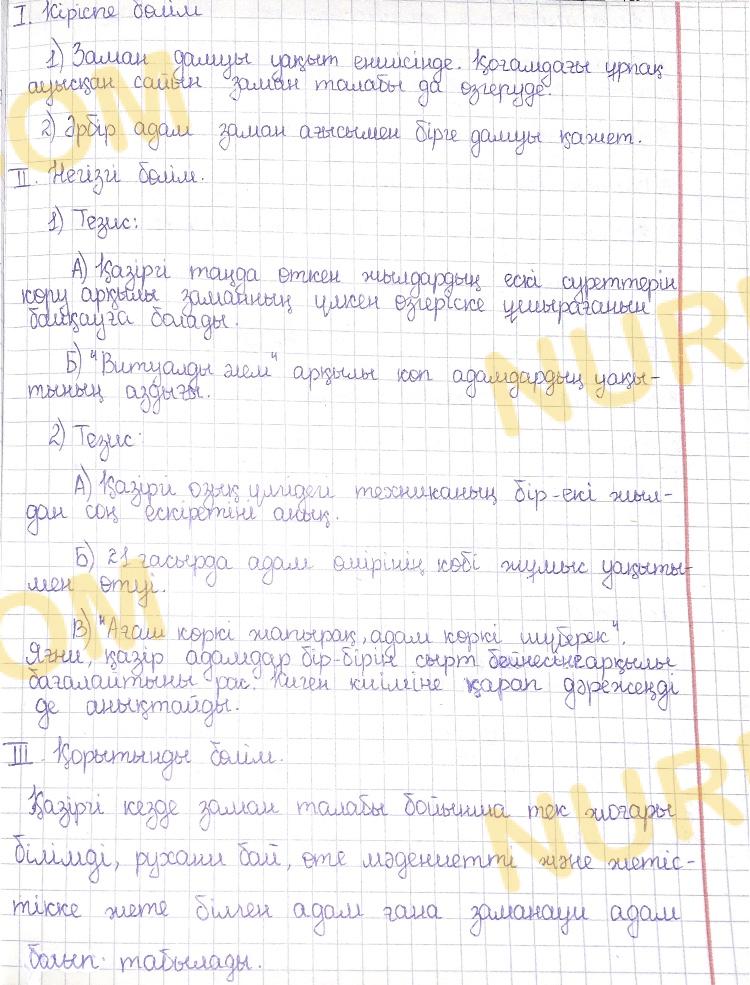 I. Кіріспе бөлім
1) Заман дамуы уақыт еншісінде. Қоғамдағы ұрпақ
ауысқан сайын заман талабы да өзгеруде.
2) Әрбір адам заман ағысымен бірге дамуы қажет.
II. Негізгі бөлім.
1) Тезис:
А) Қазіргі таңда өткен жылдардың ескі суреттерін
көру арқылы заманның үлкен өзгеріске ұшырағанын
байқауға болады.
Б) "Витуалды әлем" арқылы көп адамдардың уақы-
тының аздығы.
2) Тезис:
А) Қазіргі озық үлгідегі техниканың бір-екі жыл-
дан соң ескіретіні анық.
Б) 21 ғасырда адам өмірінің көбі жұмыс уақыты-
мен өтуі.
В) "Ағаш көркі жапырақ, адам көркі шүберек".
Яғни, қазір адамдар бір-бірін сырт бейнесіне арқылы
бағалайтыны рас. Киген киіміне қарап дәрежеңді
де анықтайды.
III. Қорытынды бөлім.
Қазіргі кезде заман талабы бойынша тек жоғары
білімді, рухани бай, өте мәдениетті және жетіс-
тікке жете білген адам ғана заманауи адам
болып табылады.
ОМ
NUR
ОМ
NUR